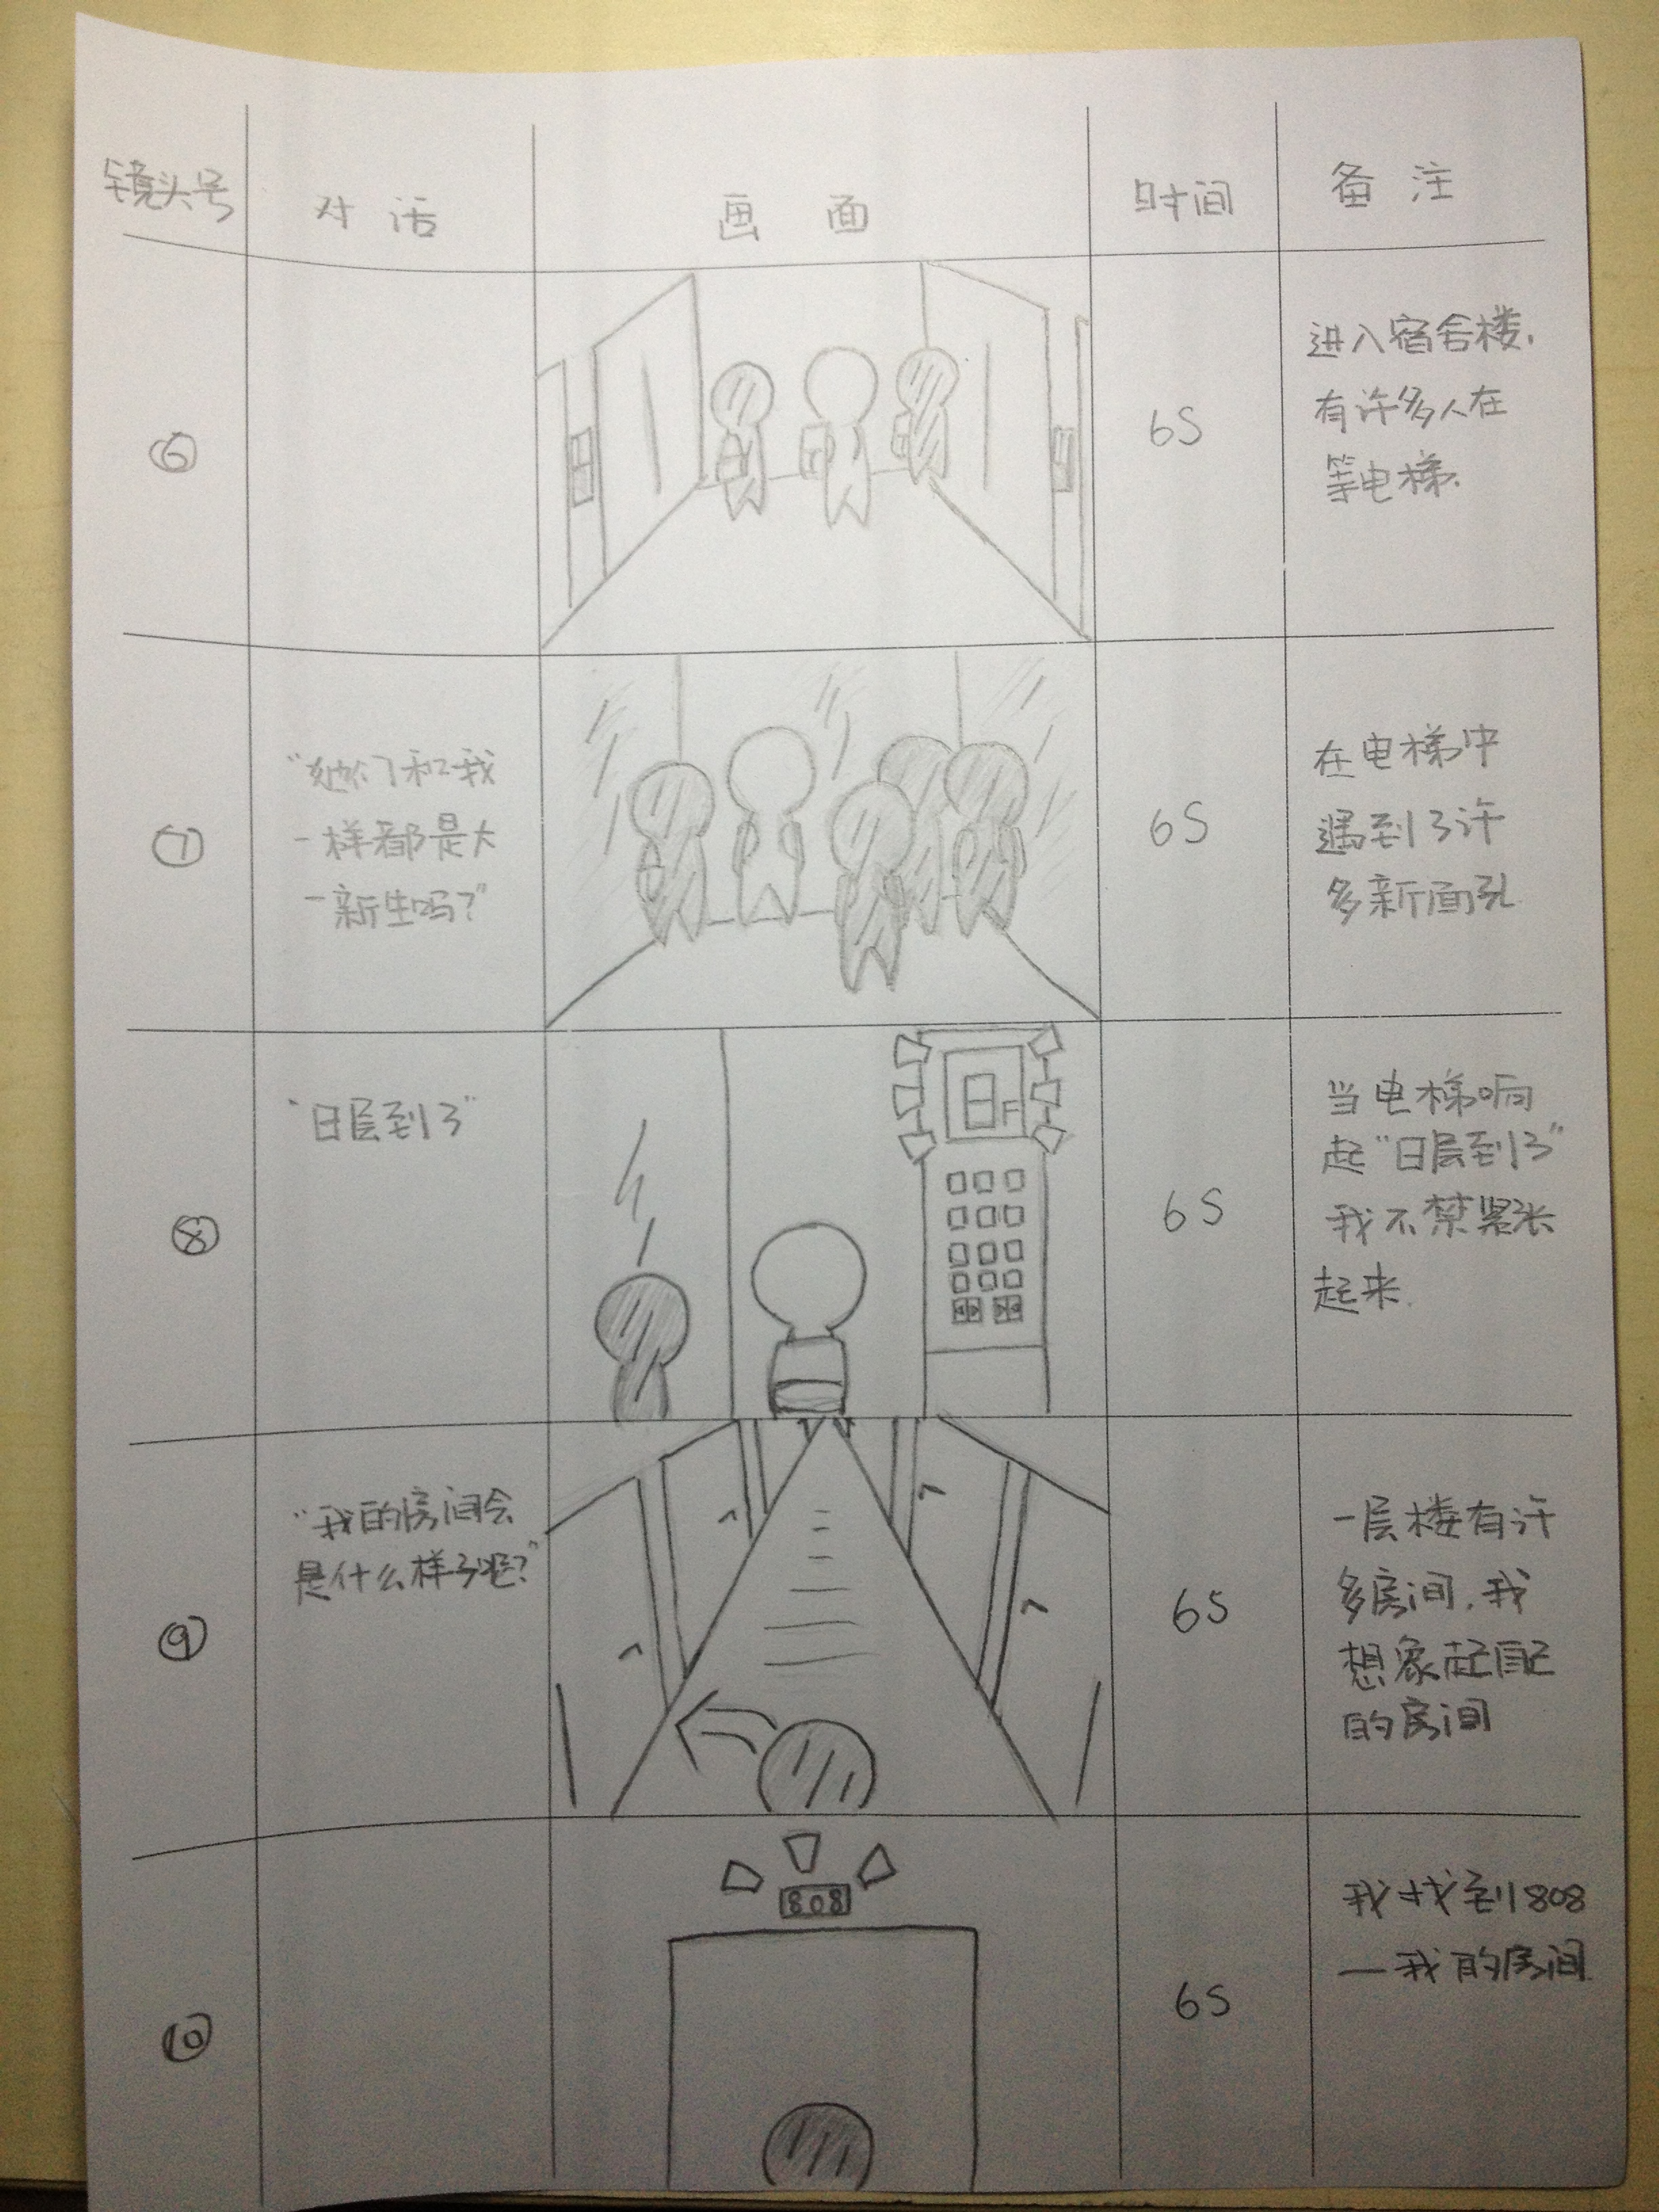 镜头号 对话 画面 时间 备注
⑥
6S
进入宿舍楼,
有许多人在
等电梯.
⑦
"她们和我
一样都是大
一新生吗?"
6S
在电梯中
遇到了许
多新面孔
⑧
"8层到了"
8F
6S
当电梯响
起"8层到了"
我不禁紧张
起来.
⑨
"我的房间会
是什么样子呢?"
6S
一层楼有许
多房间,我
想象起自己
的房间
⑩
808
6S
我找到808
—我的房间